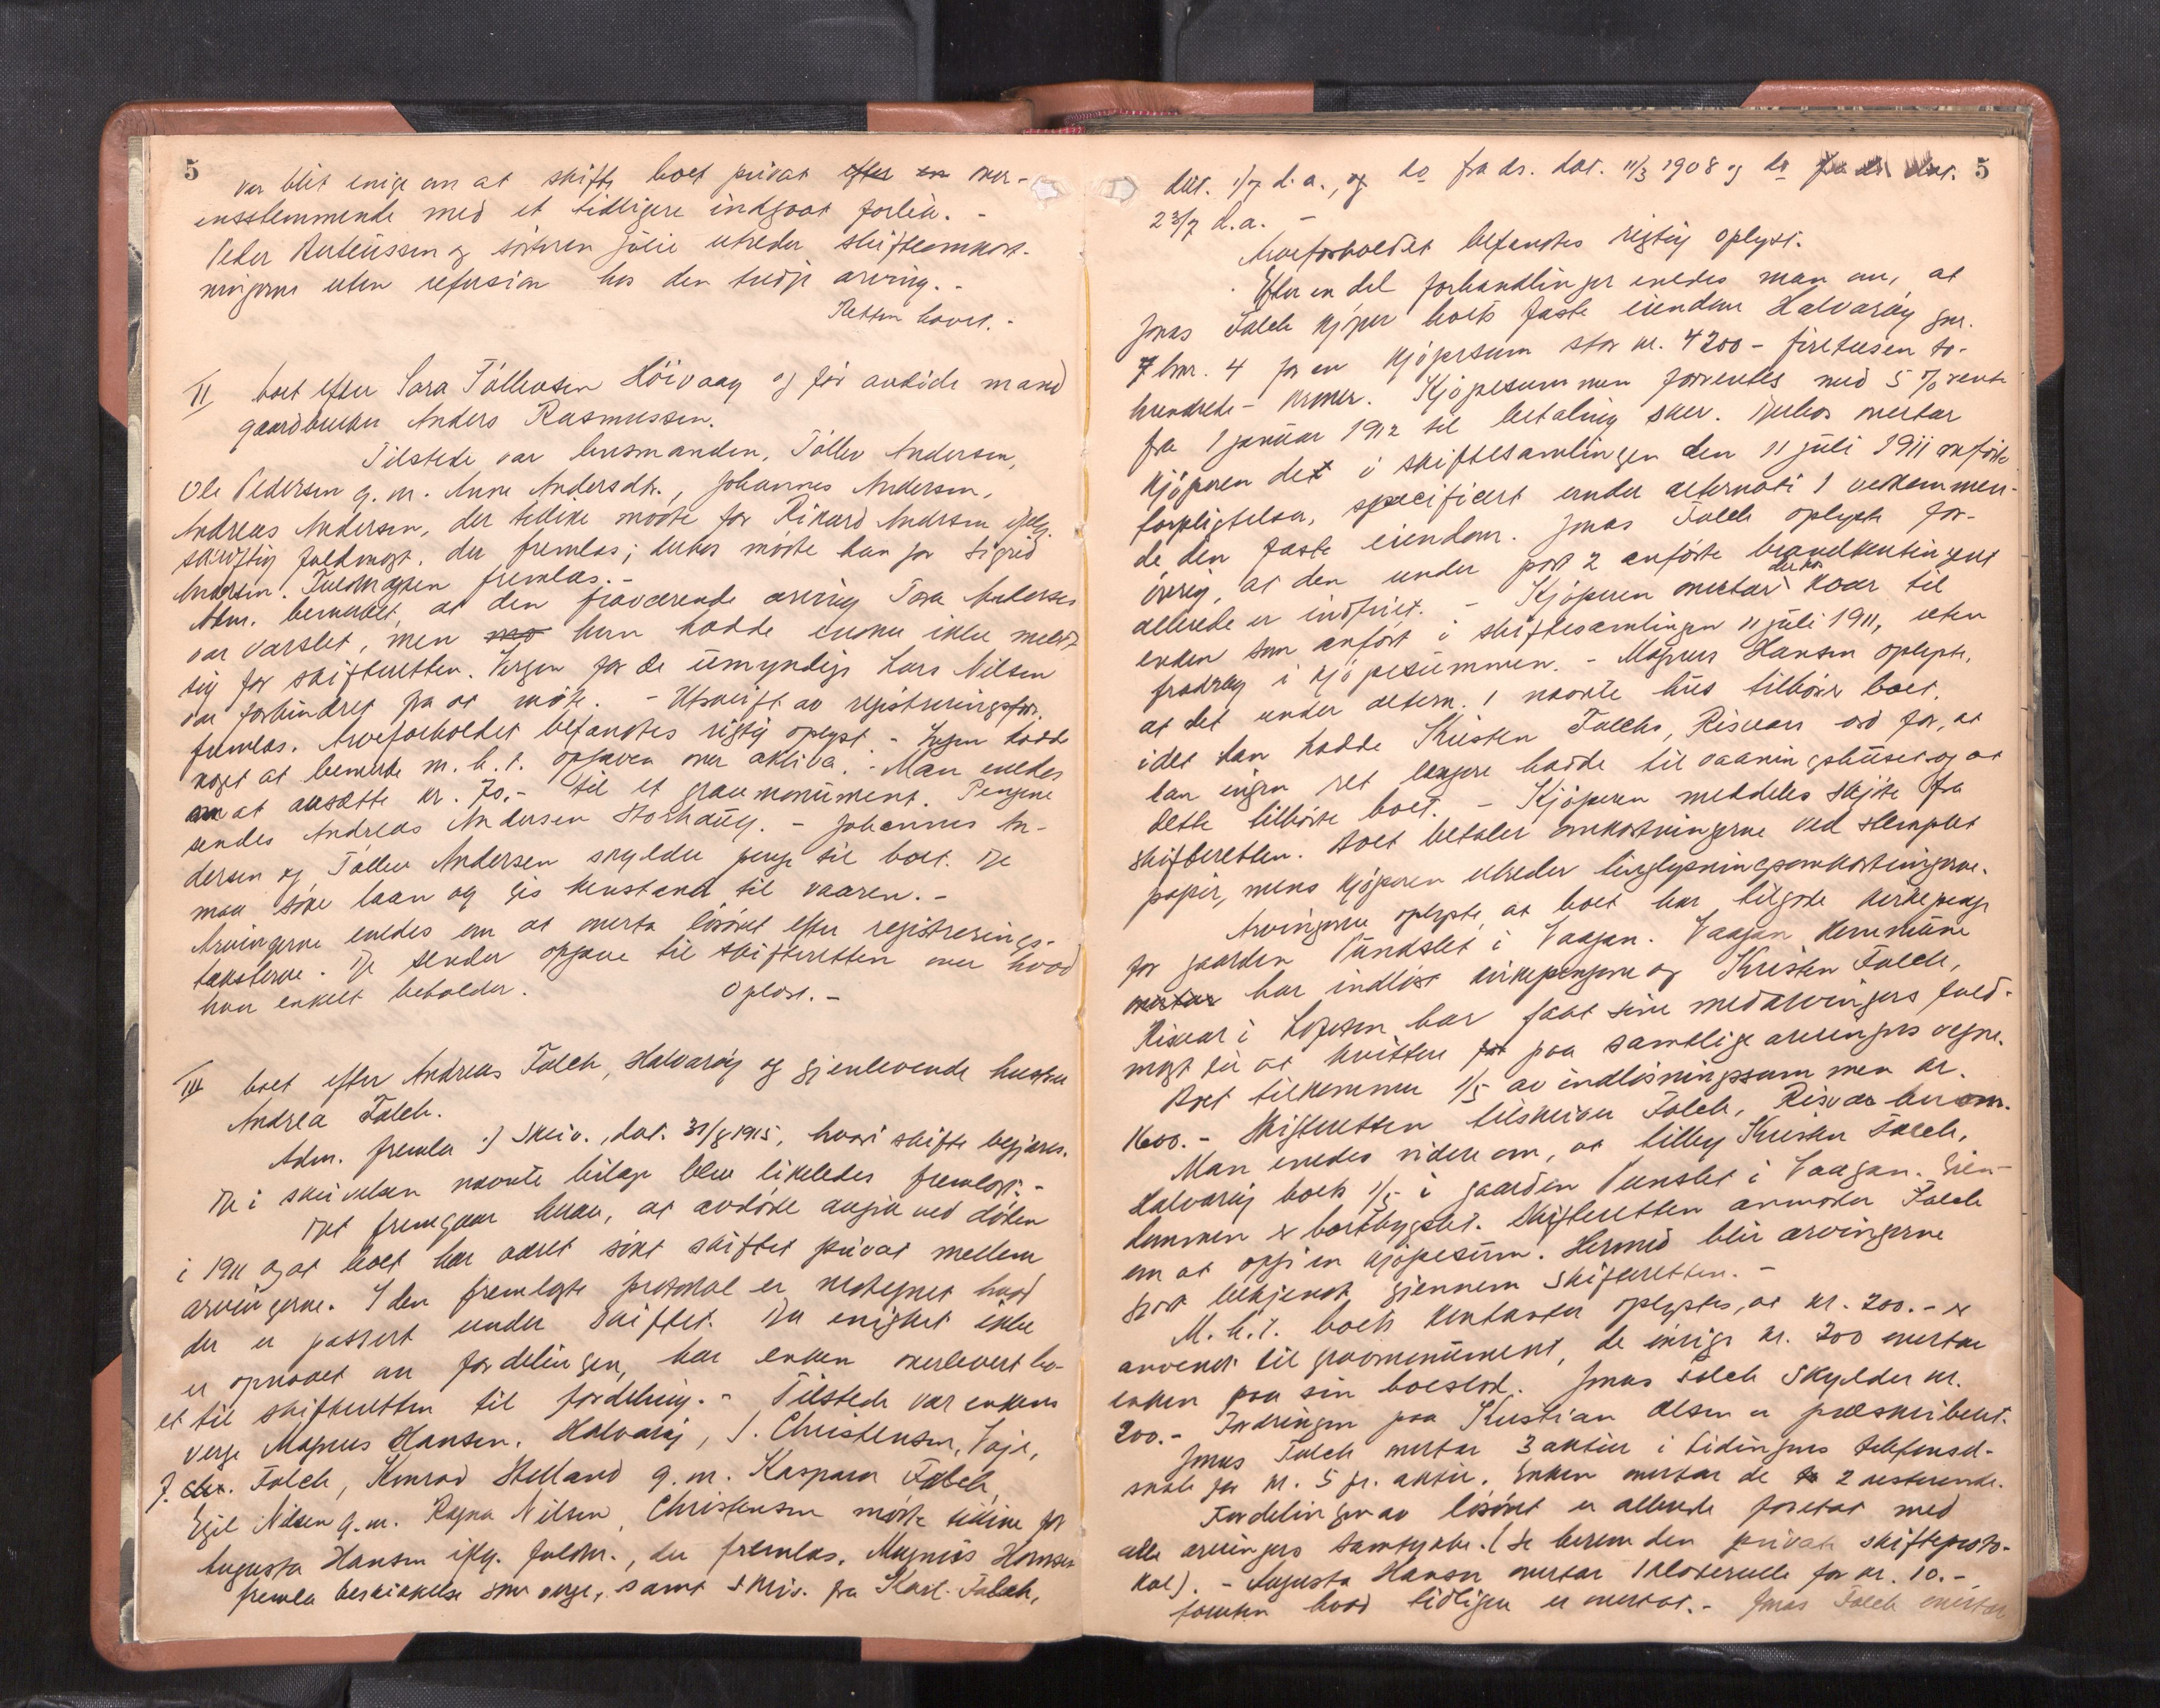 5
var blit enige om at skifte boet privat efter en over-
ensstemmende med et tidligere indgaat forlik. -
Peder Berteussen og søsteren Julie utreder skifteomkost-
ningerne uten refusion hos den tredje arving. -
Retten hævet. -
II boet efter Sara Tollevsen Höivaag og før avdöde mand
gaardbruker Anders Rasmussen.
Tilstede var lensmanden, Tollev Andersen,
Ole Pedersen g. m. Anne Andersdtr., Johannes Andersen,
Andreas Andersen, der tillike mödte for Rikard Andersen ifølg.
skriftlig fuldmagt, der fremlas; derhos mödte han for Sigrid
Andersen. Fuldmagten fremlas. -
Adm. bemerket, at den fraværende arving Tora Andersen
var varslet, men mo hun hadde endnu ikke meldt
sig for skifteretten. Vergen for de umyndige Lars Nilsen
var forhindret fra at möte. - Utskrift av registreringsfor.
fremlas. Arveforholdet befandtes rigtig oplyst. - Ingen hadde
noget at bemerke m. h. t. opgaven over aktiva. - Man enedes
om at avsætte kr. 70.- til et gravmonument. Pengene
sendes Andreas Andersen Storhaug. - Johannes An-
dersen og Tollev Andersen skylder penge til boet. De
maa söke laan og gis henstand til vaaren. -
Arvingerne enedes om at overta lösöret efter registrerings-
taksterne. De sender opgave til skifteretten over hvad
hver enkelt beholder. Oplæst. -
III boet efter Andreas Falch, Halvaröy og gjenlevende hustru
Andrea Falch.
Adm. fremla 1) Skriv., dat. 31/8 1915, hvori skifte begjæres.
De i skrivelsen nævnte bilag blev likeledes fremlagt. -
Det fremgaar herav, at avdöde avgik ved döden
i 1911 og at boet har været sökt skiftet privat mellem
arvingerne. I den fremlagte protokol er nedtegnet hvad
der er passert under skiftet. Da enighet ikke
er opnaaet om fordelingen, har enken overlevert bo-
et til skifteretten til fordeling. - Tilstede var enkens
verge Magnus Hansen, Halvaröy, J. Christensen, Vaje,
J. Chr. Falch, Konrad Helland g. m. Kaspara Falch,
Egil Nilsen g. m. Ragna Nilsen, Christensen mödte tillike for
Augusta Hansen ifølg. fuldm., der fremlas. Magnus Hansen
fremla beskikkelse som verge, samt skriv. fra Karl Falch,
5
dat. 1/7 d.a., og do fra ds. dat. 11/3 1908 og do fra ds. dat.
23/7 d.a. -
Arveforholdet befandtes rigtig oplyst.
Efter en del forhandlinger enedes man om, at
Jonas Falch kjøper boets faste eiendom Halvaröy gnr.
7 bnr. 4 for en kjøpesum stor kr. 4200 - firetusen to-
hundrede - kroner. Kjøpesummen forrentes med 5 % rente
fra 1 januar 1912 til betaling sker. Derhos overtar
kjøperen det i skiftesamlingen den 11 juli 1911 anførte
forpligtelser, specificert under alternativ 1 vedkommen-
de den faste eiendom. Jonas Falch oplyste for-
övrig, at den under post 2 anførte brandkontingent
allerede er indfriet. - Kjøperen overtar derhos kaar til
enken som anført i skiftesamlingen 11 juli 1911, uten
fradrag i kjøpesummen. - Magnus Hansen oplyste,
at det under altern. 1 nævnte hus tilhörer boet,
idet han hadde Kristen Falchs, Risvær ord for, at
han ingen ret længere hadde til vaaningshuset og at
dette tilhörte boet. - Kjøperen meddeles skjøte fra
skifteretten. Boet betaler omkostningerne ved stemplet
papir, mens kjøperen utreder tinglysningsomkostningerne.
Arvingerne oplyste, at boet har tilgode kirkepenge
for gaarden Pundslet i Vaagan. Vaagan kommune
overtar har indløst kirkepengene og Kristen Falch,
Risvær i Lofoten har faat sine medarvingers fuld-
magt til at kvittere for paa samtlige arvingers vegne.
Boet tilkommer 1/5 av indløsningssummen kr.
1600. - Skifteretten tilskriver Falch, Risvær herom.
Man enedes videre om, at tilby Kristen Falch,
Halvaröy boets 1/5 i gaarden Punslet i Vaagan. Eien-
dommen er bortbygslet. Skifteretten anmoder Falch
om at opgi en kjøpesum. Hermed blir arvingerne
gjort bekjendt gjennem skifteretten. -
M. h. t. boets kontanter oplystes, at kr. 200. - er
anvendt til gravmonument, de övrige kr. 200 overtar
enken paa sin boeslod. Jonas Falch skylder kr.
200. - Fordringen paa Kristian Olsen er præskribert.
Jonas Falch overtar 3 aktier i Tidingnes telefonsel-
skab for kr. 5 pr. aktie. Enken overtar de to 2 resterende.
Fordelingen av lösöret er allerede foretat med
alle arvingers samtykke. (Se herom den private skifteproto-
kol). - Augusta Hansen overtar 1 klæderulle for kr. 10. -
foruten hvad tidligere er overtat. - Jonas Falch overtar